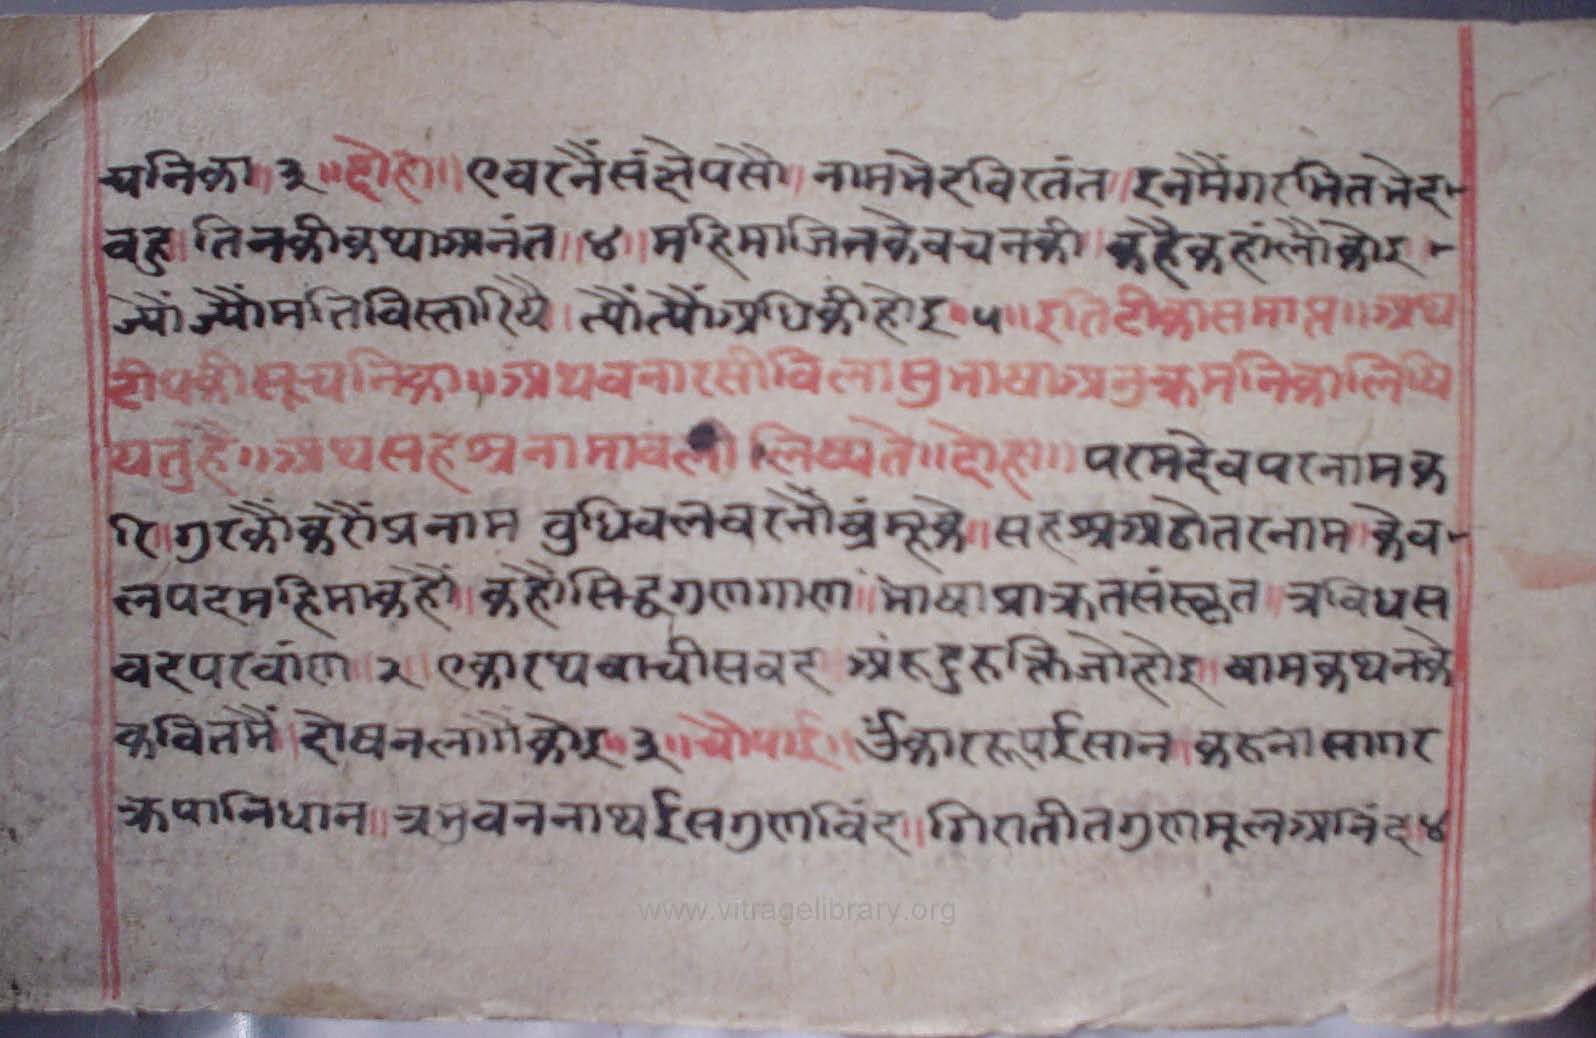 चनिका ॥ ३ ॥ दोहा ॥ ए वरनैं संक्षेपसौं ॥ नाम भेद विरतंत ॥ इनमैं गरभित भेद-
वहु ॥ तिनकी कथा अनंत ॥ ४ ॥ महिमा जिनके वचनकी ॥ कहै कहांलौं कोइ ॥-
ज्यौं ज्यौं मति विस्तारियै ॥ त्यौं त्यौं अधिकी होइ ॥ ५ ॥ इति टीका समाप्त ॥ अथ
टीपकी सूचनिका ॥ अथ वनारसी विलासु भाषा अनुक्रमनिका लिषि
यतु है ॥ अथ सहश्रनामावली लिष्यते ॥ दोहा ॥ परमदेव परनाम क
रि ॥ गुरकौं करौं प्रनाम वुधिवल वरनौं व्रंम्हके ॥ सहश्र अठोतर नाम ॥ केव-
ल पद महिमा कहौं ॥ कहौं सिद्ध गुण गाण ॥ भाषा प्राक्रत संस्कृत ॥ त्रविध स
वद परवांण ॥ २ ॥ एकारथ वाची सवद ॥ अंरु दुरुक्ति जो होइ ॥ षाम कथनके
कवितमैं ॥ दोष न लागैं कोइ ॥ ३ ॥ चौपाई ॥ उंकाररूप ईसान ॥ करुनासागर
क्रपानिधान ॥ त्रभुवननाथ ईस गुणविंद ॥ गिरातीत गुणमूल अनंद ४
www.vitragelibrary.org